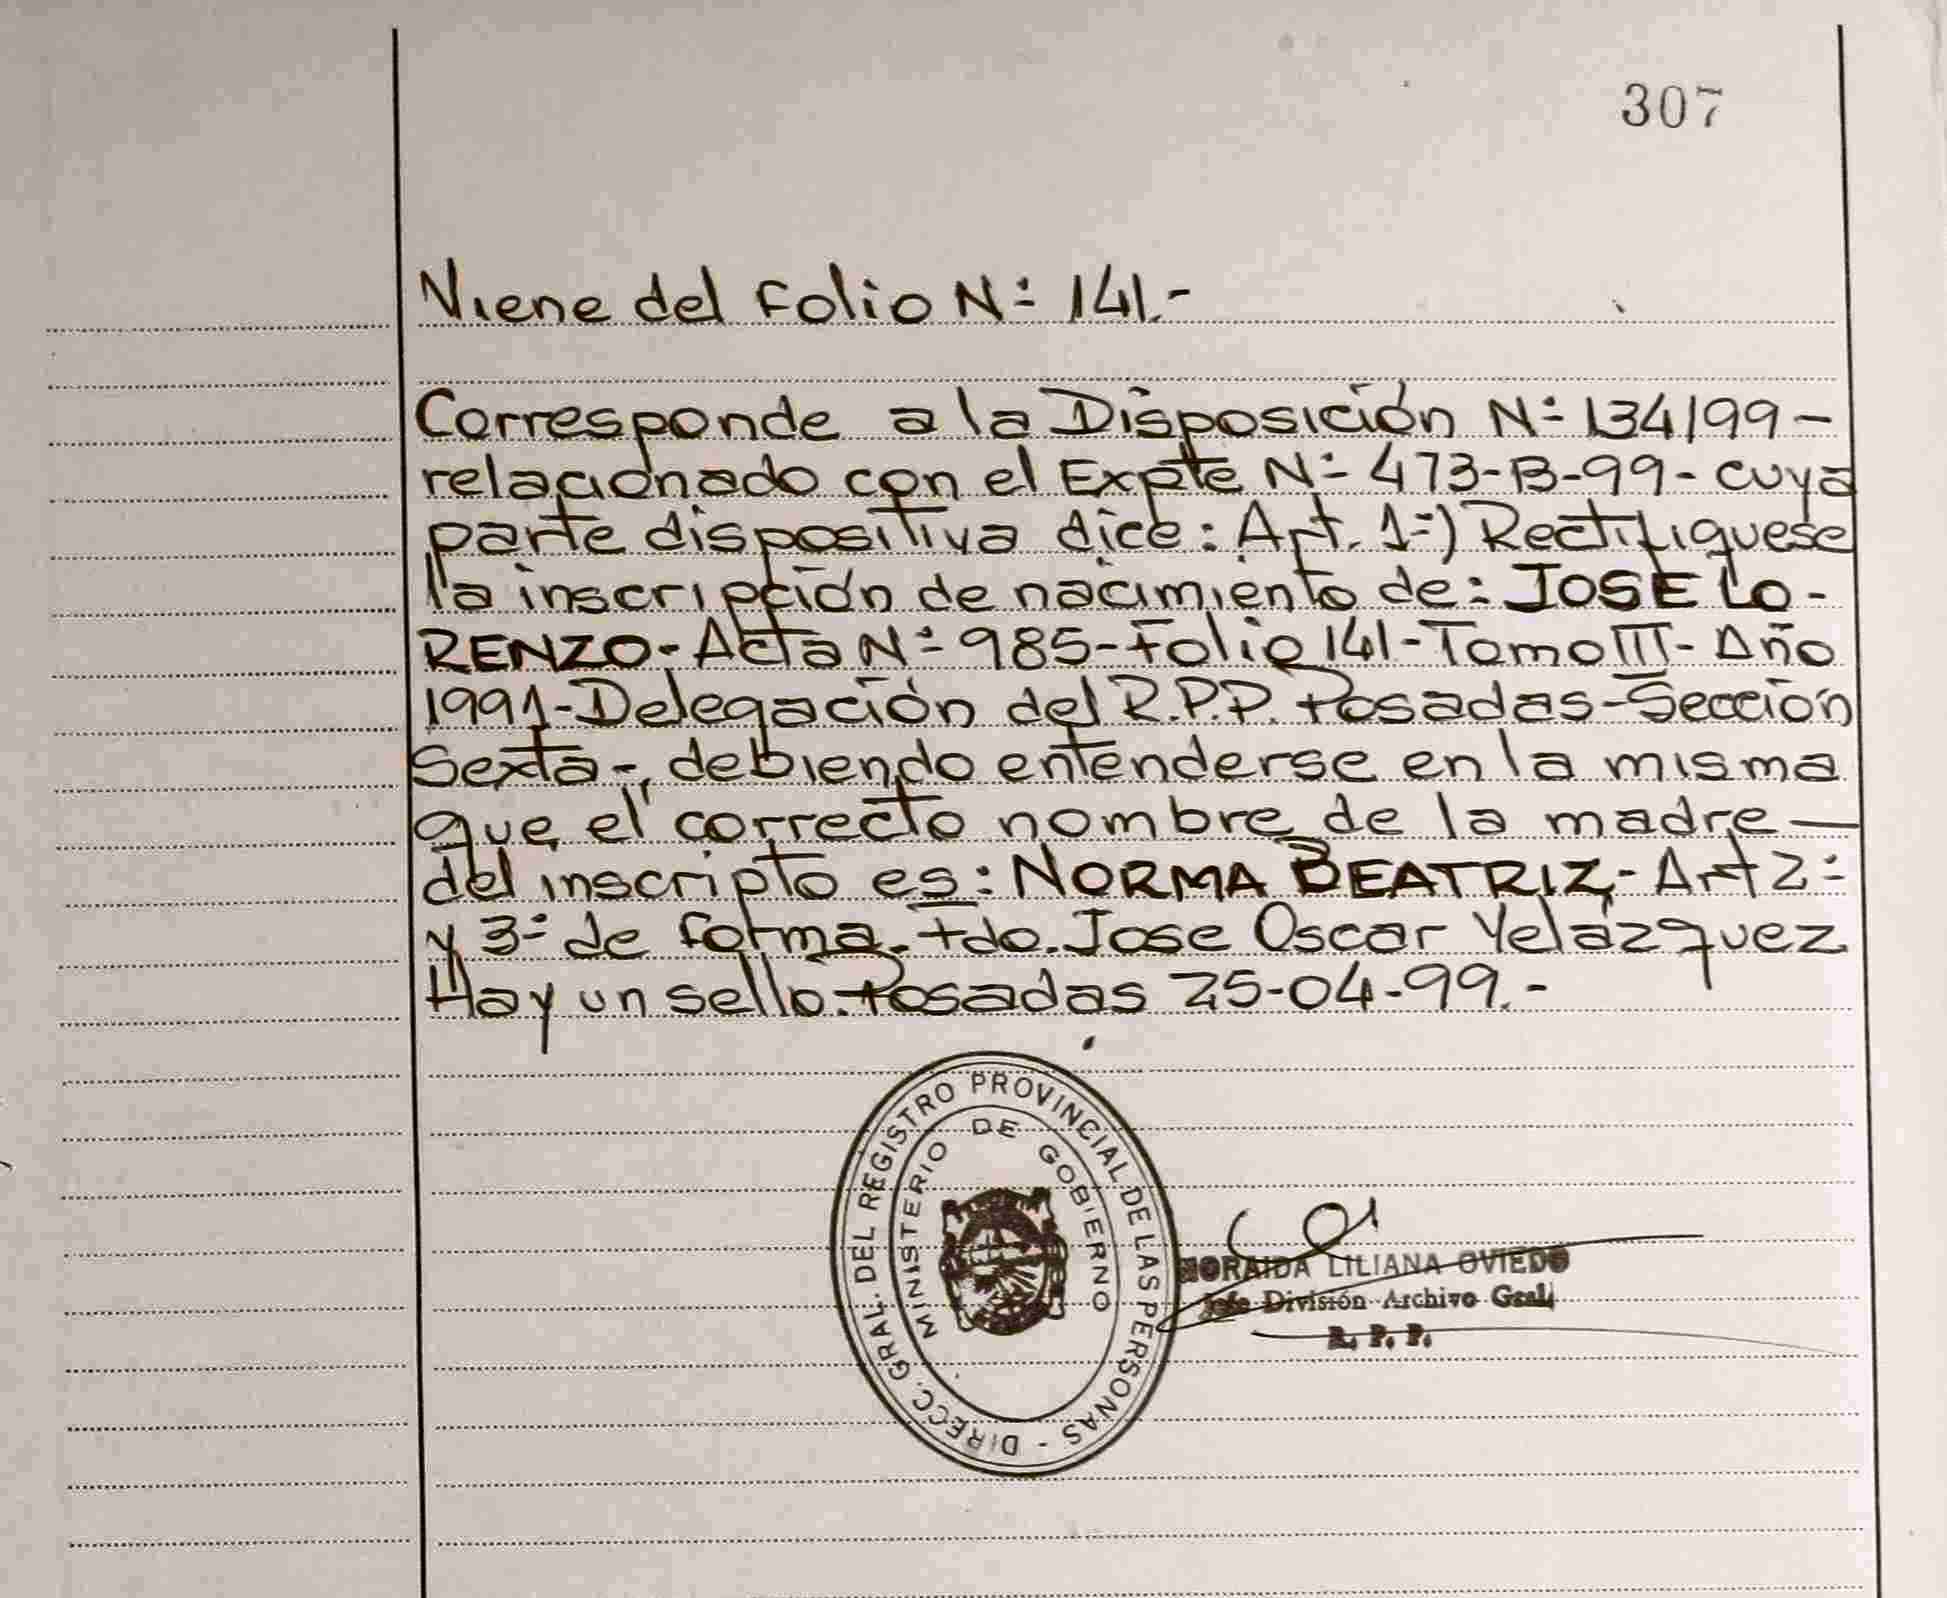 307
Viene del folio Nº 141.-
Corresponde a la Disposición Nº 134/99-
relacionado con el Expte Nº 473-B-99- cuya
parte dispositiva dice: Art. 1º) Rectifiquese
la inscripción de nacimiento de: JOSE LO-
RENZO- Acta Nº 985- Folio 141- Tomo III- Año
1991- Delegación del R.P.P. Posadas- Sección
Sexta-, debiendo entenderse en la misma
que el correcto nombre de la madre —
del inscripto es: NORMA BEATRIZ,- Art 2º
y 3º de forma. Fdo. Jose Oscar Velázquez
Hay un sello. Posadas 25-04-99.-
DIRECC. GRAL. DEL REGISTRO PROVINCIAL DE LAS PERSONAS -
MINISTERIO DE GOBIERNO
LILIANA OVIEDO
Jefe División Archivo Gral.
R. P. P.